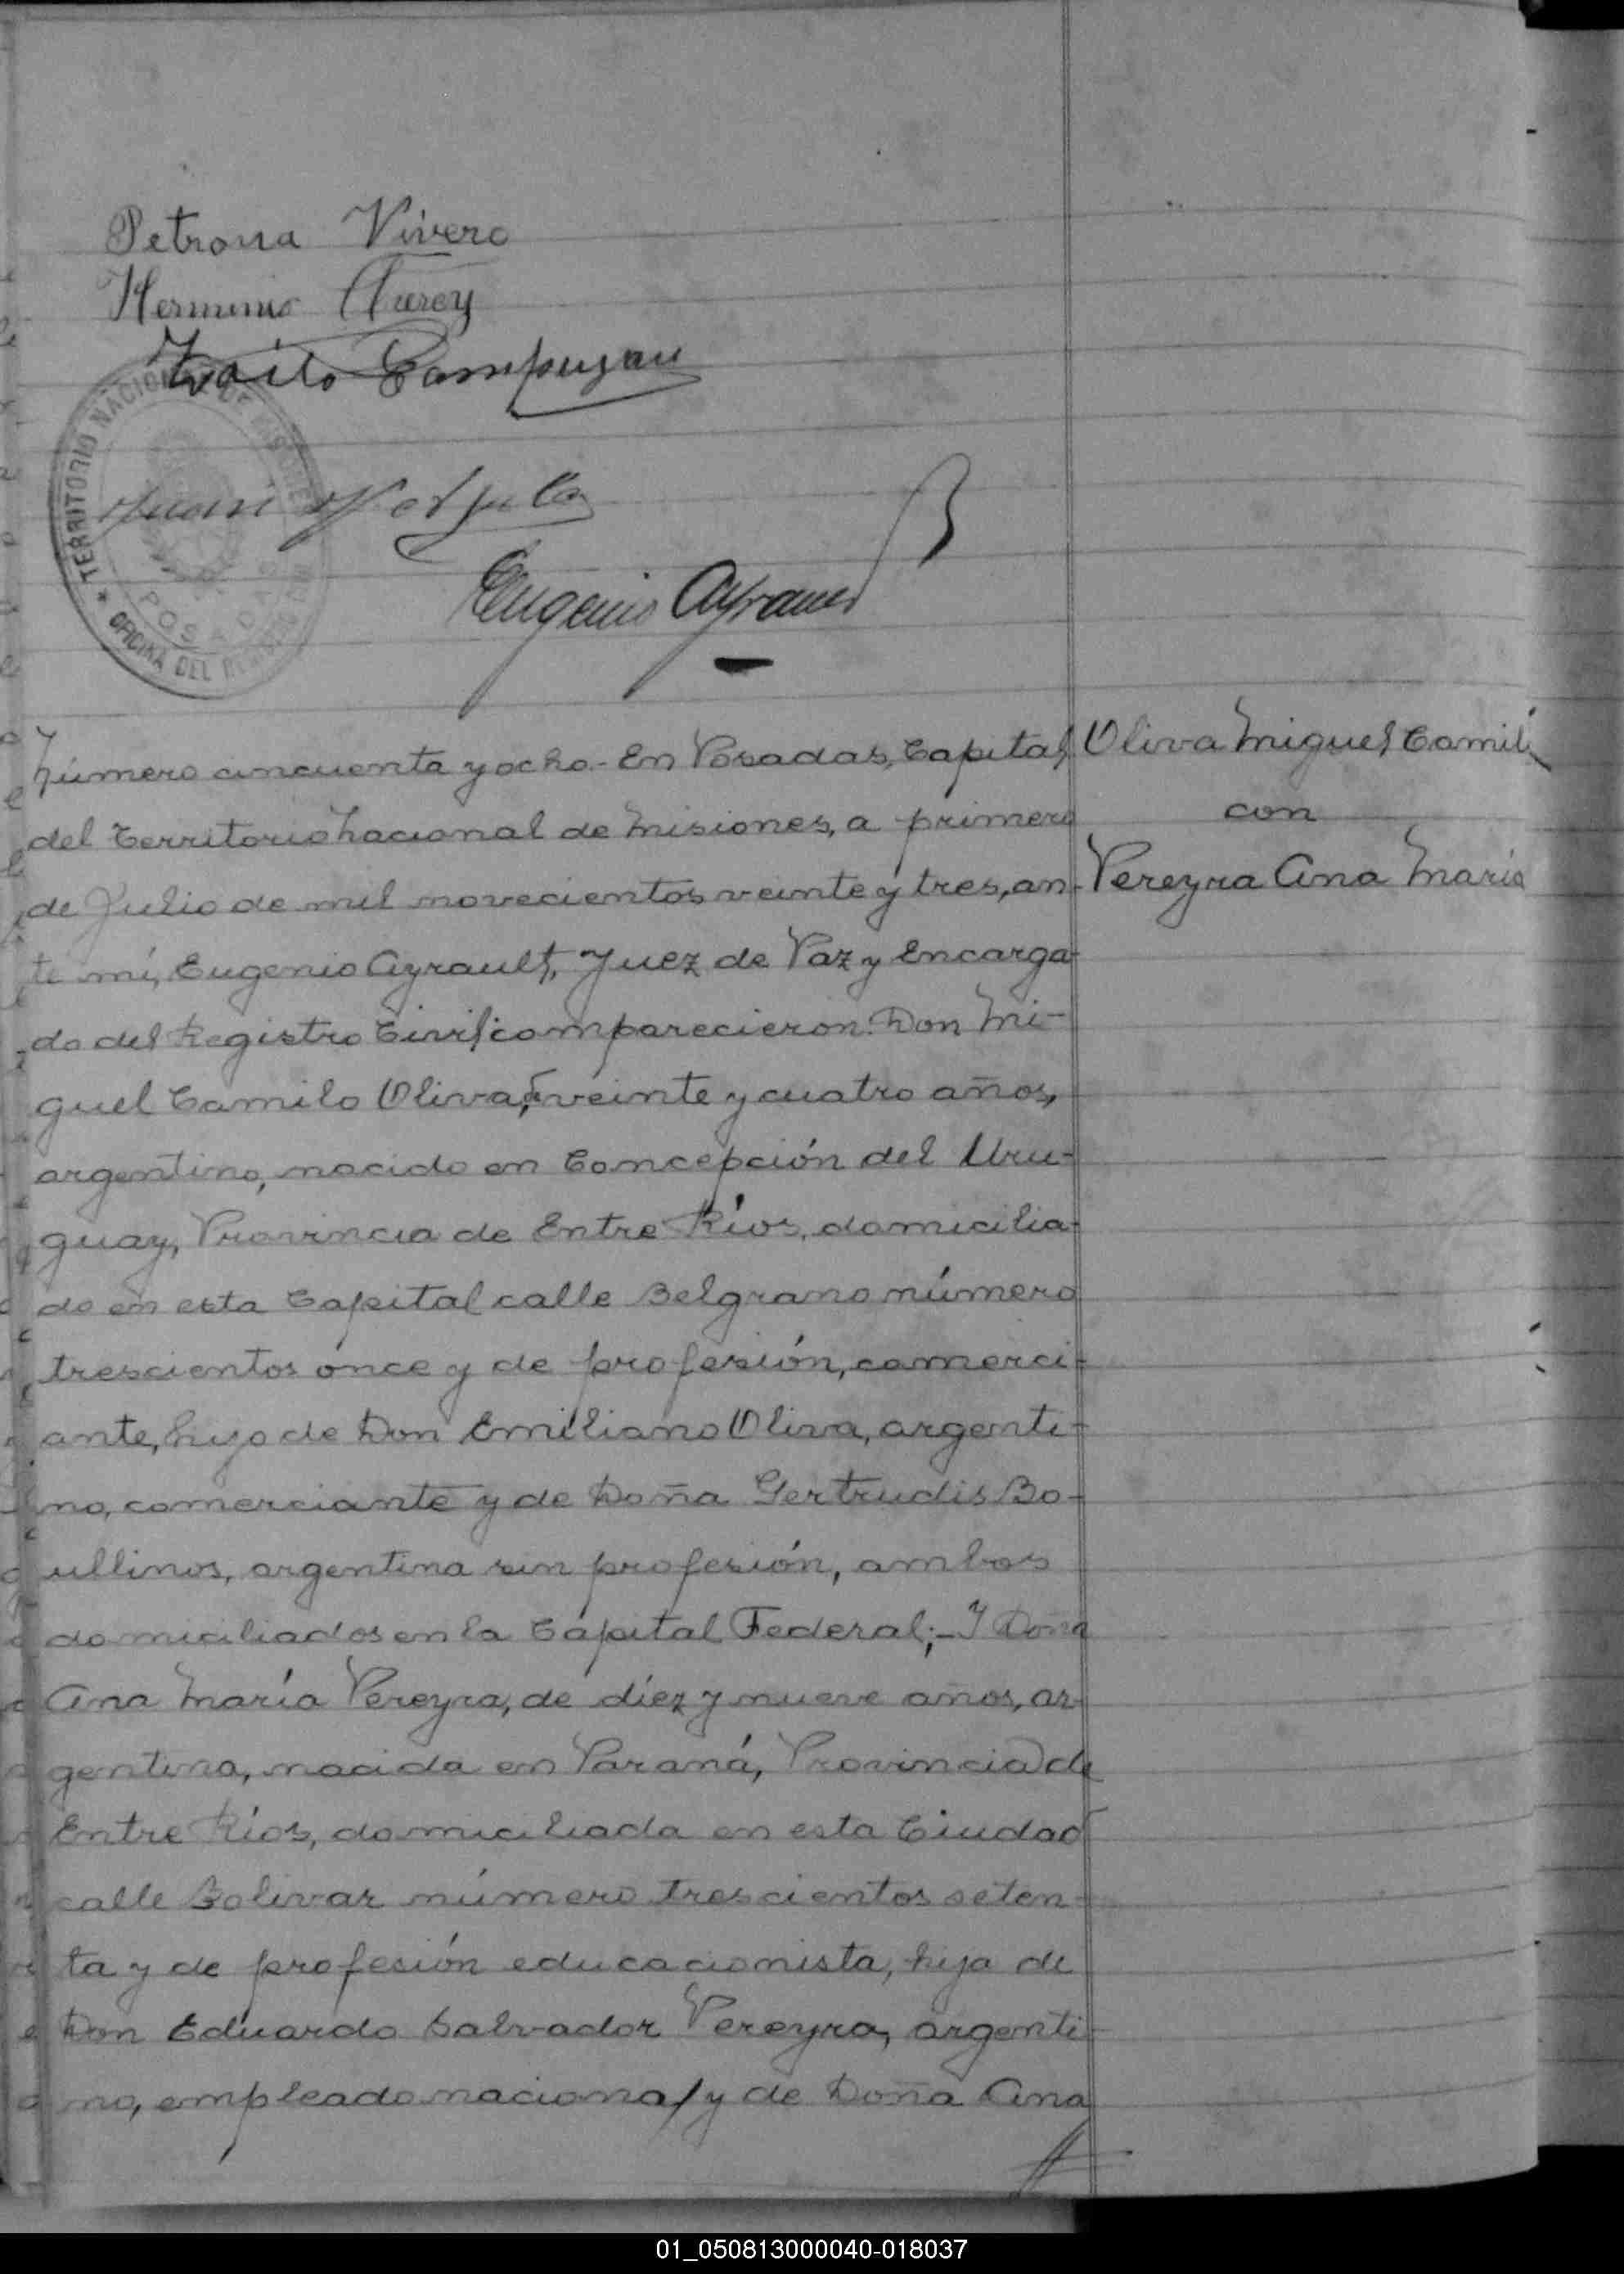 Petrona Vivero
Herminio
Zoilo
Juan
Eugenio Ayrault
TERRITORIO NACIONAL DE MISIONES
POSADAS
OFICINA DEL REGISTRO CIVIL
Número cincuenta y ocho.- En Posadas, Capital
del Territorio Nacional de Misiones, a primero
de Julio de mil novecientos veinte y tres, an-
te mí, Eugenio Ayrault, Juez de Paz y Encarga-
do del Registro Civil, comparecieron: Don Mi-
guel Camilo Oliva, de veinte y cuatro años,
argentino, nacido en Concepción del Uru-
guay, Provincia de Entre Ríos, domicilia-
do en esta Capital calle Belgrano número
trescientos ónce y de profesión, comerci-
ante, hijo de Don Emiliano Oliva, argenti-
no, comerciante y de Doña Gertrudis Bo-
ullinos, argentina sin profesión, ambos
domiciliados en la Capital Federal;- Y Doña
Ana María Pereyra, de diez y nueve años, ar-
gentina, nacida en Paraná, Provincia de
Entre Ríos, domiciliada en esta Ciudad
calle Bolivar número trescientos seten-
ta y de profesión educacionista, hija de
Don Eduardo Salvador Pereyra, argenti-
no, empleado nacional y de Doña Ana
Oliva Miguel Camilo
con
Pereyra Ana María
01_050813000040-018037